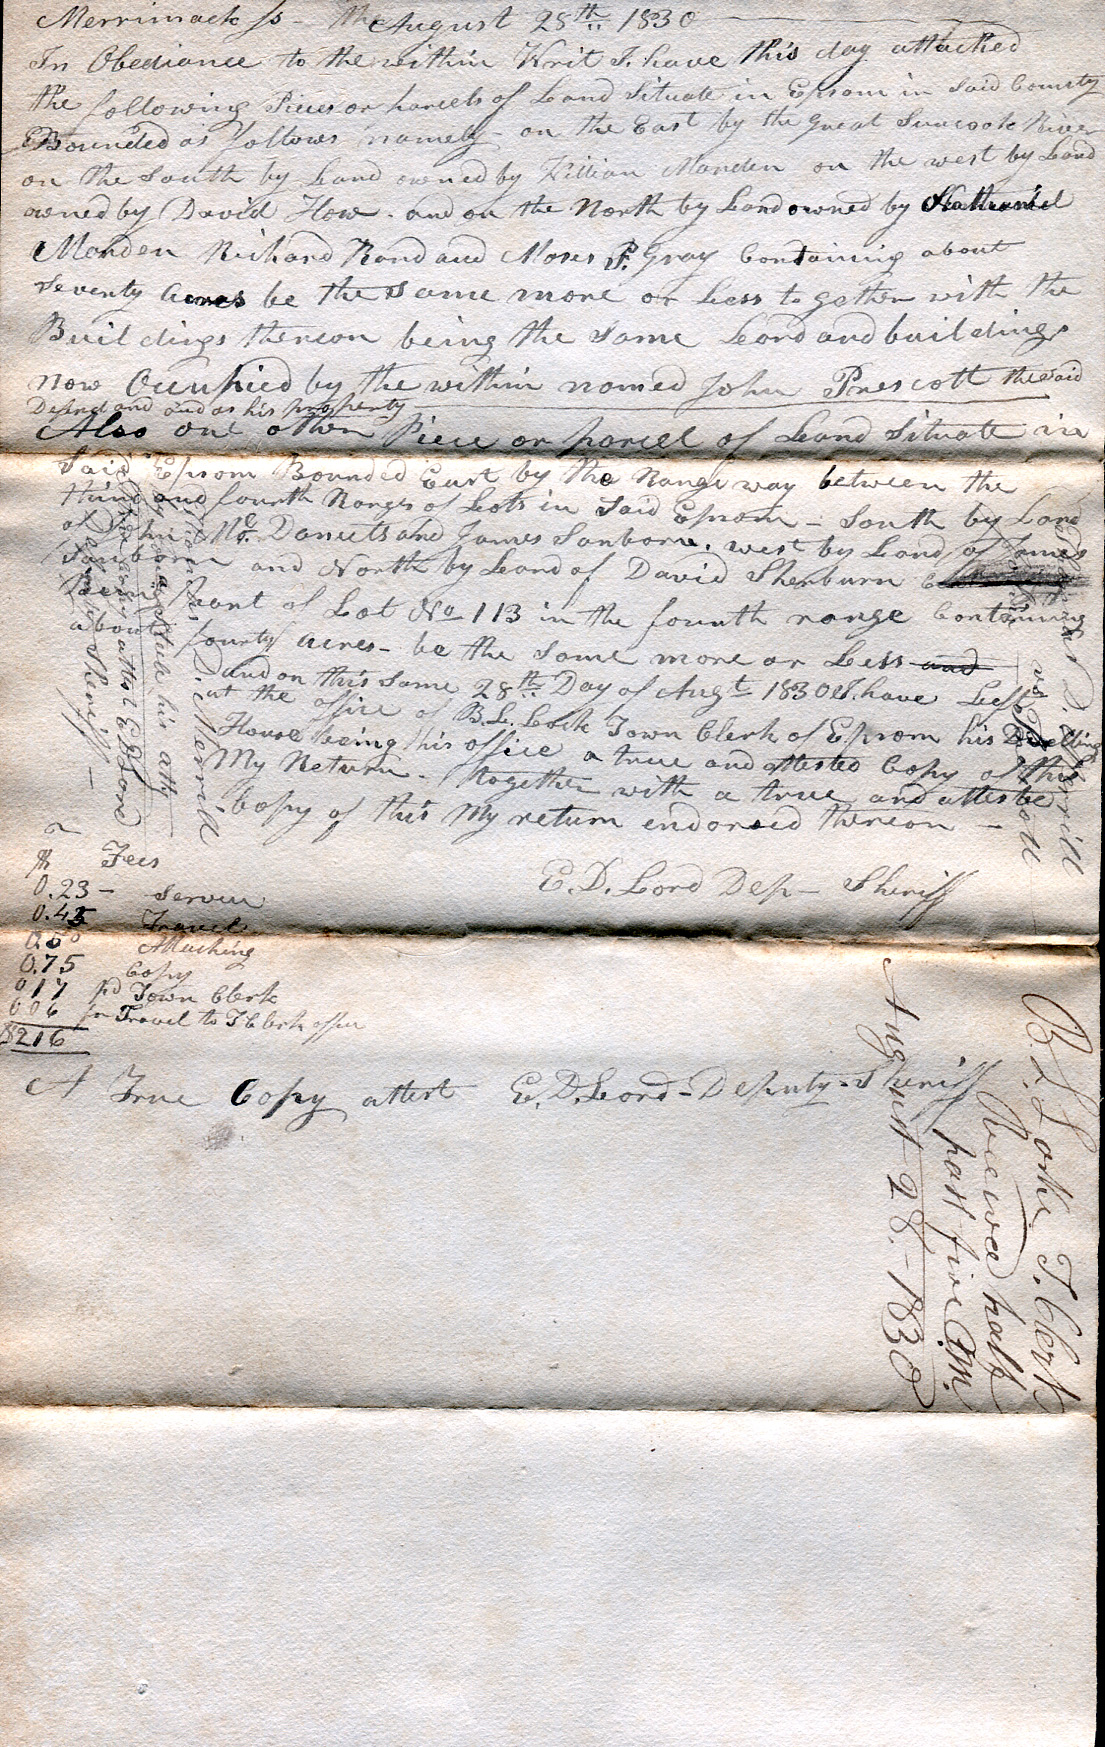 Merrimack ss - the August 28th 1830
In Obediance to the within Writ I have this day attached
the following Pieces or parcels of Land Situate in Epsom in Said County
Bounded as follows namely - on the East by the Great Suncook River
on the South by Land owned by Marden on the west by Land
owned by David How - and on the North by Land owned by Nathaniel
Marden Richard Rand and Moses P. Gray Containing about
Seventy acres be the same more or Less together with the
Buildings thereon being the Same Land and buildings
now Occupied by the within named John Prescott the said
Defendand and as his property
Also one other Piece or parcel of Land Situate in
Said Epsom Bounded East by the Range way between the
third and fourth Ranges of Lots in Said Epsom - South by Land
of John Mc Daniels and James Sanborn. west by Land of James
Sanborn and North by Land of David Sherburn
being part of Lot No 113 in the fourth range Containing
about fourty acres - be the same more or Less and
and on this Same 28th Day of Augt 1830 I have Left
at the office of B. L. Lock Town Clerk of Epsom his Dwelling
House being his office a true and attested Copy of this
My Return - together with a true and atteste
Copy of this My return endorsed thereon -
E. D. Lord Dep - Sheriff
$ Fees
0.23 - Service
0.45 Travel
0.50 Attaching
0.75 Copy
017 pd Town Clerk
006 for Travel to T Clerk office
$216
A True Copy attest E. D. Lord - Deputy - Sheriff
his atty
D. Merrill
attst E D Lord
Deputy Sheriff -
D. Merrill
vs
B. L. Locke T. Clerk
Received half
past five P.M.
August 28. - 1830